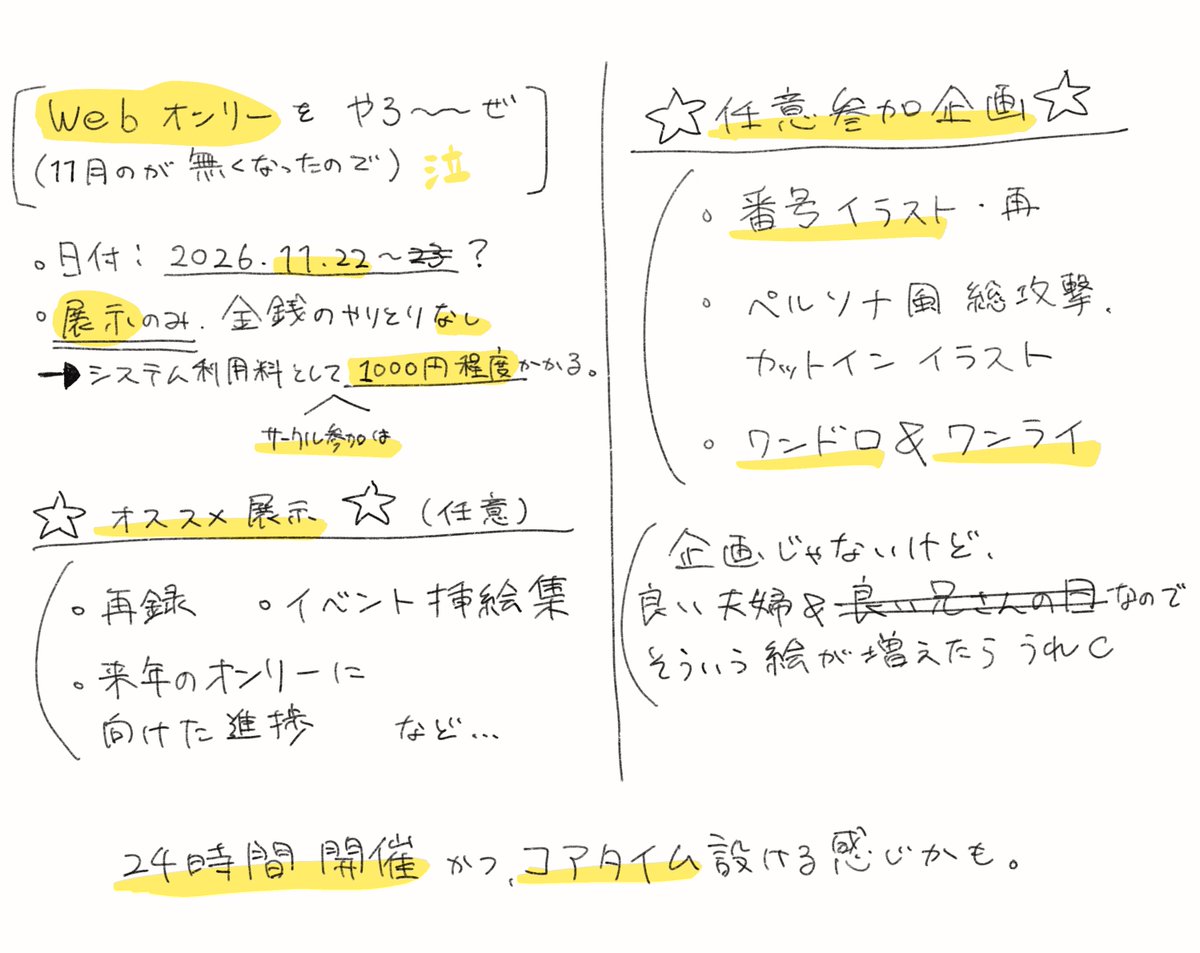 Webオンリーを やろ〜〜ぜ
(11月のが 無くなったので) 泣
。日付: 2026.11.22〜23?
。展示のみ. 金銭のやりとりなし
→システム利用料として1000円程度かかる。
サークル参加は
☆ オススメ展示 ☆ (任意)
。再録 。イベント挿絵集
。来年のオンリーに
向けた進捗 など…
☆任意参加企画☆
。番号イラスト・再
。ペルソナ風 総攻撃.
カットイン イラスト
。ワンドロ&ワンライ
企画じゃないけど、
良い夫婦&良い兄さんの日なので
そういう絵が増えたら うれC
24時間 開催 かつ、コアタイム設ける感じかも。